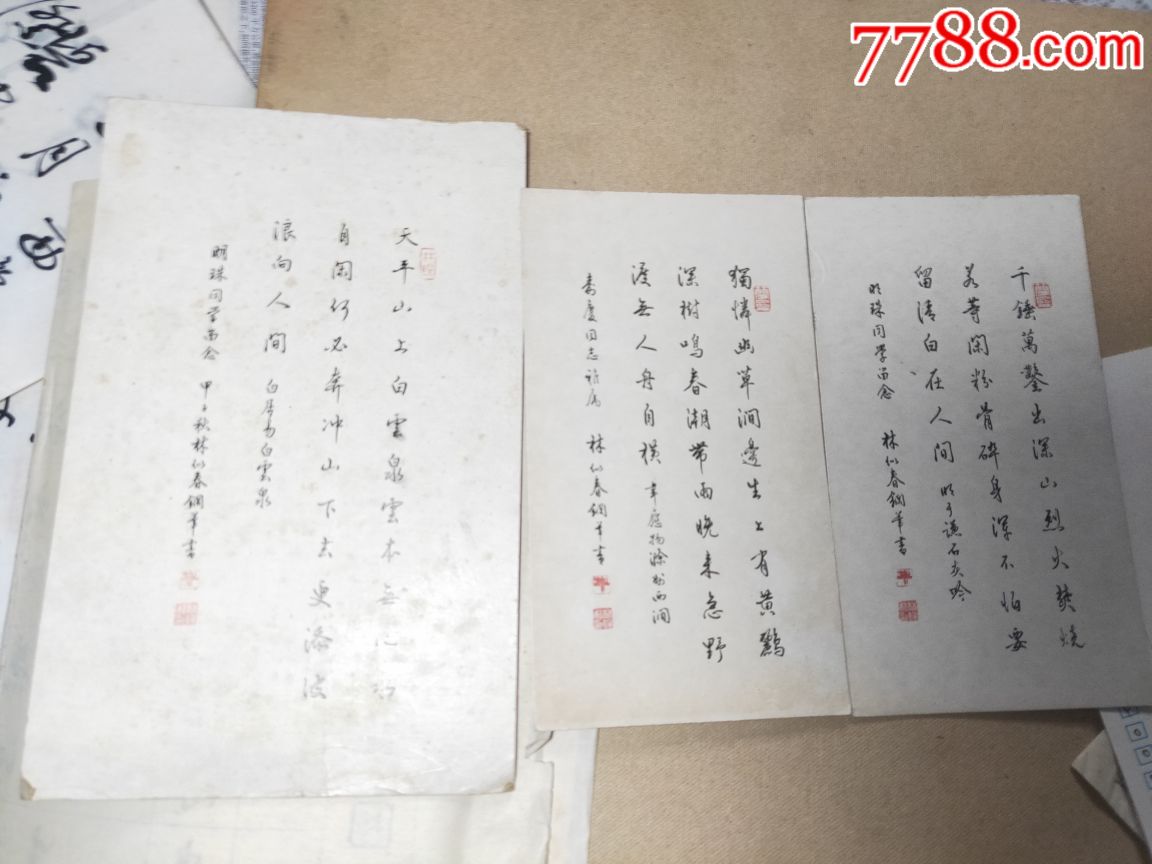 7788.com
千锤萬鑿出深山烈火焚燒
若等闲粉骨碎身渾不怕要
留清白在人间 明于謙石灰吟
明珠同學留念 林似春鋼筆書
獨憐幽草澗邊生上有黄鸝
深樹鳴春潮带雨晚来急野
渡無人舟自横 韋應物滁州西澗
壽慶同志雅属 林似春鋼筆書
天平山上白雲泉雲本無心水
自闲何必奔冲山下去更添波
浪向人间 白居易白雲泉
明珠同学留念 甲子秋林似春鋼筆書
月